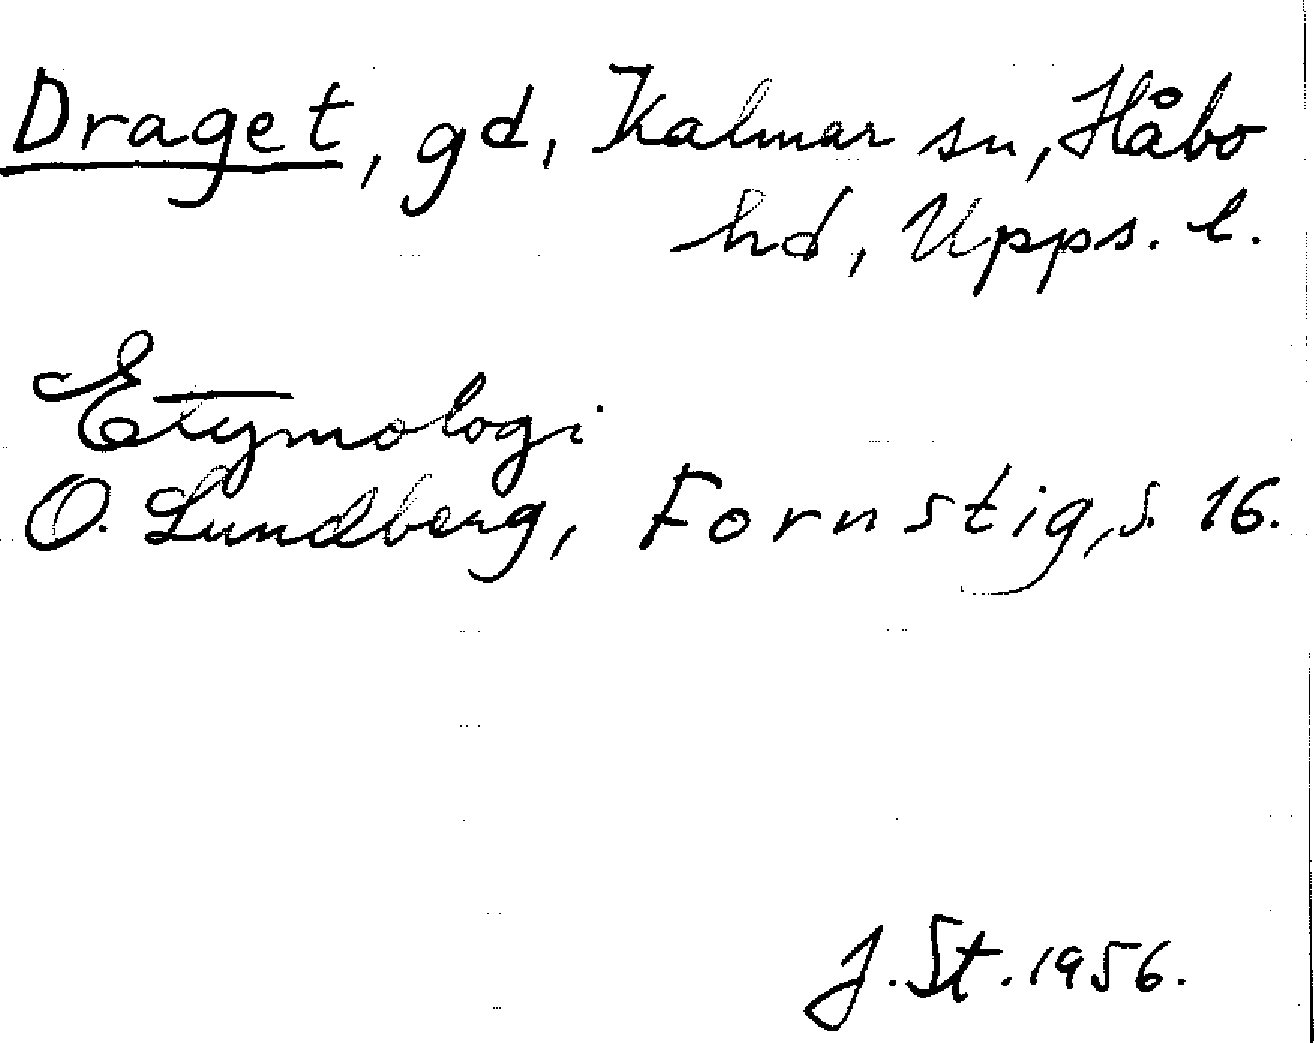 Draget, gd, Kalmar sn, Håbo
hd, Upps. l.
Etymologi
O. Lundberg, Fornstig, s. 16.
J. St. 1956.